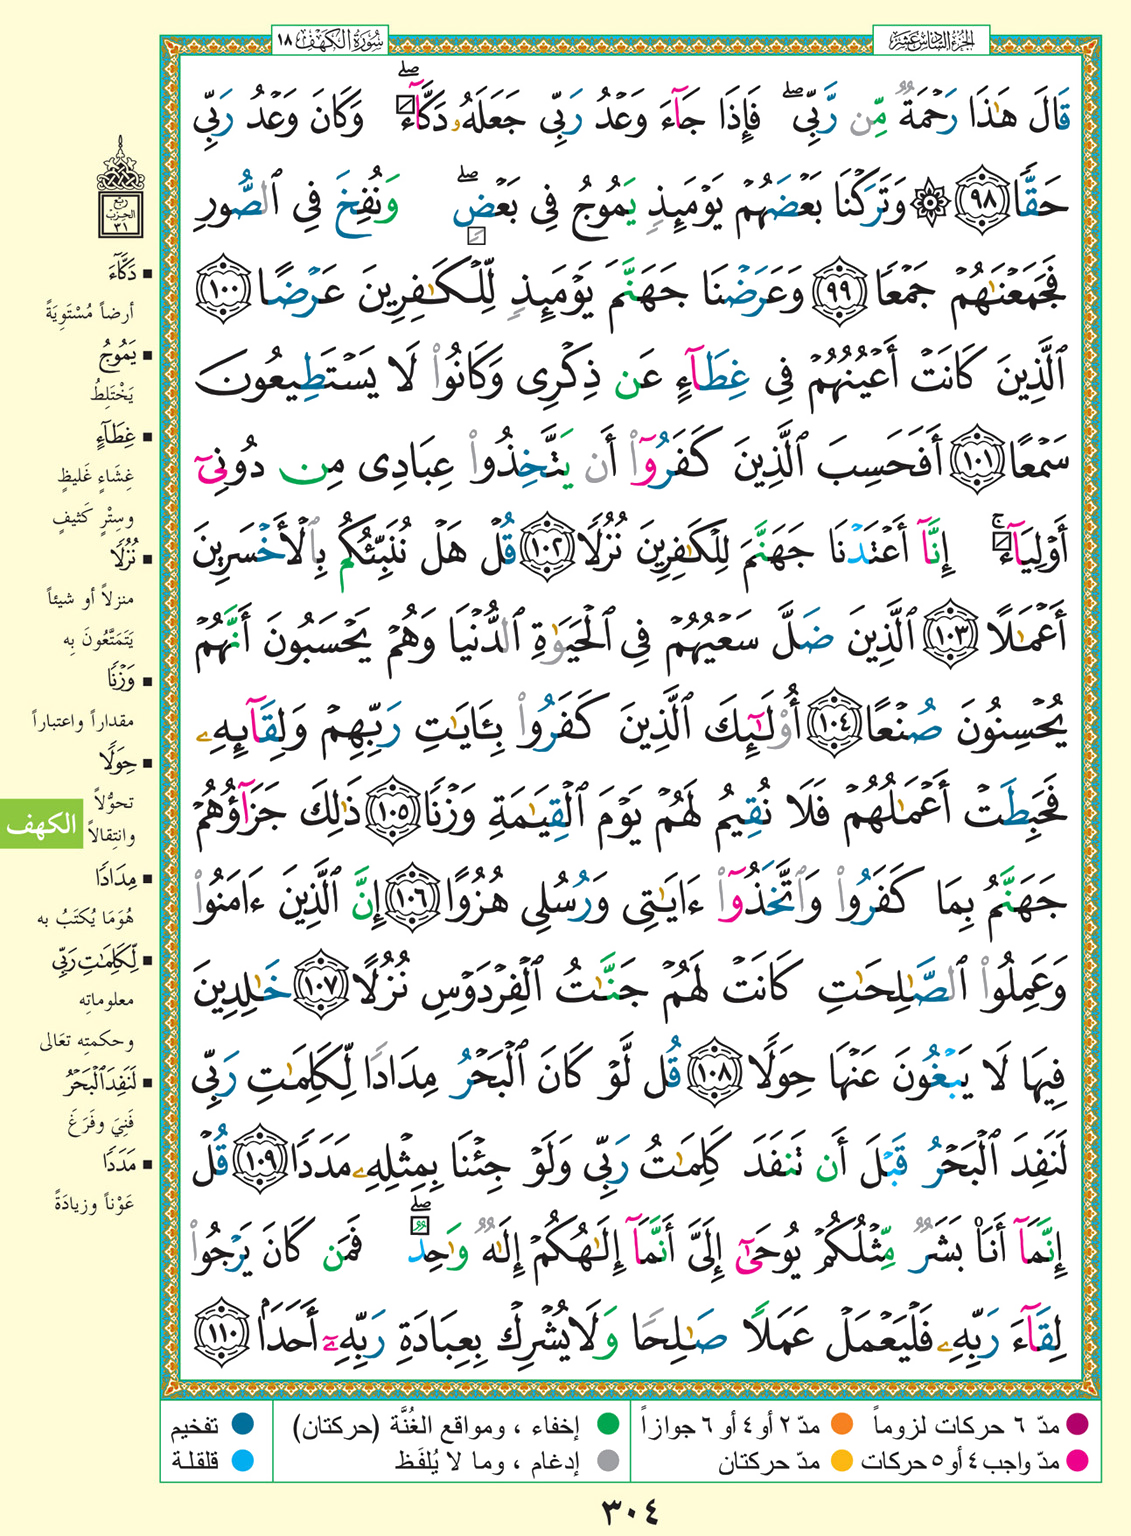 الجزء السادس عشر
سورة الكهف ١٨
قَالَ هَٰذَا رَحْمَةٌ مِّن رَّبِّى ۖ فَإِذَا جَآءَ وَعْدُ رَبِّى جَعَلَهُۥ دَكَّآءَ ۖ وَكَانَ وَعْدُ رَبِّى
حَقًّا ٩٨ ۞ وَتَرَكْنَا بَعْضَهُمْ يَوْمَئِذٍ يَمُوجُ فِى بَعْضٍ ۖ وَنُفِخَ فِى ٱلصُّورِ
فَجَمَعْنَٰهُمْ جَمْعًا ٩٩ وَعَرَضْنَا جَهَنَّمَ يَوْمَئِذٍ لِّلْكَٰفِرِينَ عَرْضًا ١٠٠
ٱلَّذِينَ كَانَتْ أَعْيُنُهُمْ فِى غِطَآءٍ عَن ذِكْرِى وَكَانُوا۟ لَا يَسْتَطِيعُونَ
سَمْعًا ١٠١ أَفَحَسِبَ ٱلَّذِينَ كَفَرُوٓا۟ أَن يَتَّخِذُوا۟ عِبَادِى مِن دُونِىٓ
أَوْلِيَآءَ ۚ إِنَّآ أَعْتَدْنَا جَهَنَّمَ لِلْكَٰفِرِينَ نُزُلًا ١٠٢ قُلْ هَلْ نُنَبِّئُكُم بِٱلْأَخْسَرِينَ
أَعْمَٰلًا ١٠٣ ٱلَّذِينَ ضَلَّ سَعْيُهُمْ فِى ٱلْحَيَوٰةِ ٱلدُّنْيَا وَهُمْ يَحْسَبُونَ أَنَّهُمْ
يُحْسِنُونَ صُنْعًا ١٠٤ أُو۟لَٰٓئِكَ ٱلَّذِينَ كَفَرُوا۟ بِـَٔايَٰتِ رَبِّهِمْ وَلِقَآئِهِۦ
فَحَبِطَتْ أَعْمَٰلُهُمْ فَلَا نُقِيمُ لَهُمْ يَوْمَ ٱلْقِيَٰمَةِ وَزْنًا ١٠٥ ذَٰلِكَ جَزَآؤُهُمْ
جَهَنَّمُ بِمَا كَفَرُوا۟ وَٱتَّخَذُوٓا۟ ءَايَٰتِى وَرُسُلِى هُزُوًا ١٠٦ إِنَّ ٱلَّذِينَ ءَامَنُوا۟
وَعَمِلُوا۟ ٱلصَّٰلِحَٰتِ كَانَتْ لَهُمْ جَنَّٰتُ ٱلْفِرْدَوْسِ نُزُلًا ١٠٧ خَٰلِدِينَ
فِيهَا لَا يَبْغُونَ عَنْهَا حِوَلًا ١٠٨ قُل لَّوْ كَانَ ٱلْبَحْرُ مِدَادًا لِّكَلِمَٰتِ رَبِّى
لَنَفِدَ ٱلْبَحْرُ قَبْلَ أَن تَنفَدَ كَلِمَٰتُ رَبِّى وَلَوْ جِئْنَا بِمِثْلِهِۦ مَدَدًا ١٠٩ قُلْ
إِنَّمَآ أَنَا۠ بَشَرٌ مِّثْلُكُمْ يُوحَىٰٓ إِلَىَّ أَنَّمَآ إِلَٰهُكُمْ إِلَٰهٌ وَٰحِدٌ ۖ فَمَن كَانَ يَرْجُوا۟
لِقَآءَ رَبِّهِۦ فَلْيَعْمَلْ عَمَلًا صَٰلِحًا وَلَا يُشْرِكْ بِعِبَادَةِ رَبِّهِۦٓ أَحَدَۢا ١١٠
ربع
الحزب
٣١
دَكَّآءَ
أرضاً مُسْتَوِيَةً
يَمُوجُ
يَخْتَلِطُ
غِطَآءٍ
غِشَاءٍ غَليظٍ
وسِتْرٍ كَثيفٍ
نُزُلًا
منزلاً أو شيئاً
يَتَمَتَّعُونَ بِه
وَزْنًا
مقداراً واعتباراً
حِوَلًا
تحوُّلاً
وانتِقالاً
الكهف
مِدَادًا
هُوَمَا يُكتَبُ به
لِّكَلِمَٰتِ رَبِّى
معلوماتِه
وحكمتِه تعَالى
لَنَفِدَ ٱلْبَحْرُ
فَنِيَ وفَرَغَ
مَدَدًا
عَوْناً وزيادَةً
مدّ ٦ حركات لزوماً
مدّ ٢ أو ٤ أو ٦ جوازاً
إخفاء ، ومواقع الغُنَّة (حركتان)
تفخيم
مدّ واجب ٤ أو ٥ حركات
مدّ حركتان
إدغام ، وما لا يُلفَظ
قلقلة
٣٠٤